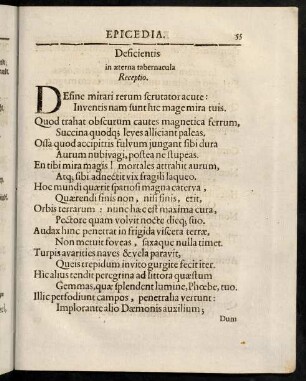 EPICEDIA. 55
Deficientis
in æterna tabernacula
Receptio.
DEsine mirari rerum scrutator acute:
Inventis nam sunt hic mage mira tuis.
Quod trahat obscurum cautes magnetica ferrum,
Succina quodqꝫ leves alliciant paleas.
Ossa quod accipitris fulvum jungant sibi dura
Aurum nubivagi, postea ne stupeas.
En tibi mira magis! mortales attrahit aurum,
Atqꝫ sibi adnectit vix fragili laqueo.
Hoc mundi quærit spatiosi magna caterva,
Quærendi finis non, nisi finis, erit.
Orbis terrarum: nunc hæc est maxima cura,
Pectore quam volvit nocte dieqꝫ suo.
Audax hinc penetrat in frigida viscera terræ,
Non metuit foveas, saxaque nulla timet.
Turpis avarities naves & vela paravit,
Queis trepidum invito gurgite fecit iter.
Hic alius tendit peregrina ad littora quæstum
Gemmas, quæ splendent lumine, Phœbe, tuo.
Illic perfodiunt campos, penetralia vertunt:
Implorant alio Dæmonis auxilium;
Dum